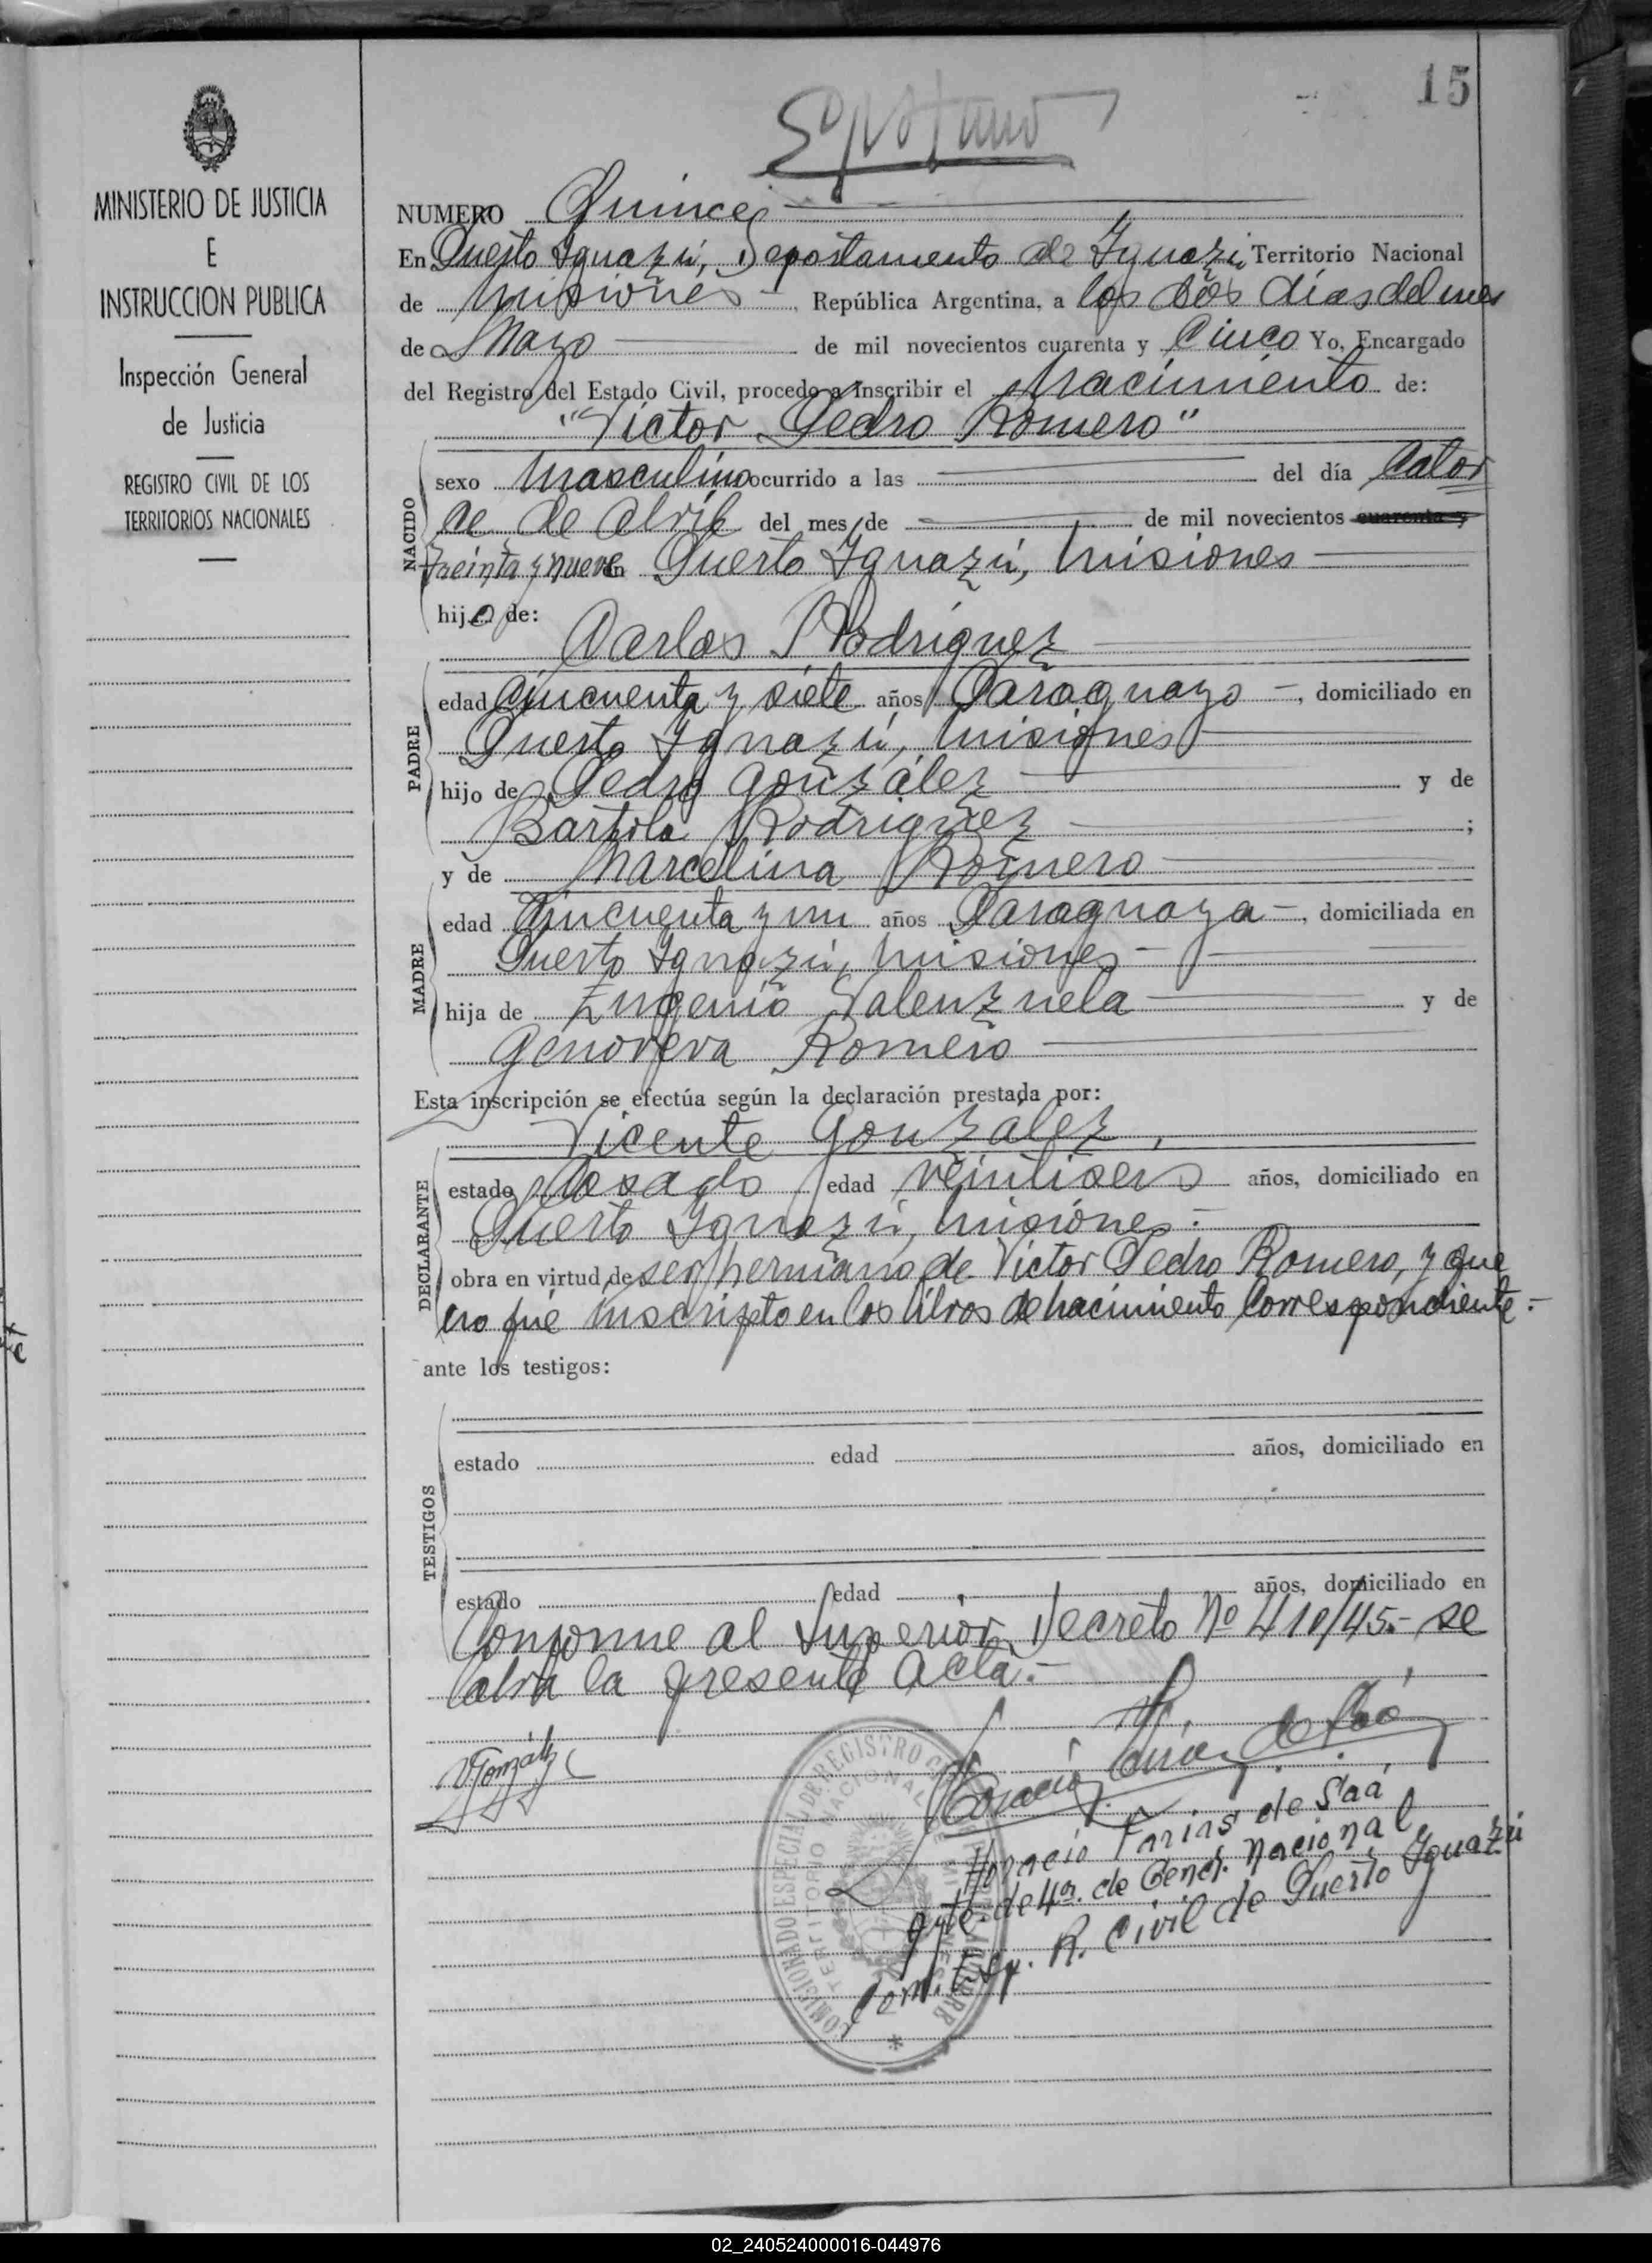 15
MINISTERIO DE JUSTICIA
E
INSTRUCCION PUBLICA
Inspección General
de Justicia
REGISTRO CIVIL DE LOS
TERRITORIOS NACIONALES
NUMERO Quince
En Puerto Iguazú, Departamento de Iguazú Territorio Nacional
de Misiones, República Argentina, a los dos días del mes
de Mayo de mil novecientos cuarenta y Cinco Yo, Encargado
del Registro del Estado Civil, procedo a inscribir el Nacimiento de:
"Victor Pedro Romero"
NACIDO
sexo Masculino ocurrido a las del día Cator
ce de Abril del mes de de mil novecientos cuarenta y
treinta y nueve en Puerto Iguazú, Misiones
hijo de:
Carlos Rodríguez
PADRE
edad Cincuenta y siete años Paraguayo -, domiciliado en
Puerto Iguazú, Misiones
hijo de Pedro González y de
Bartola Rodriguez ;
y de Marcelina Romero
MADRE
edad Cincuenta y un años Paraguaya -, domiciliada en
Puerto Iguazú, Misiones -
hija de Eugenio Valenzuela y de
Genoveva Romero
Esta inscripción se efectúa según la declaración prestada por:
Vicente González,
DECLARANTE
estado Casado edad veintiseis años, domiciliado en
Puerto Iguazú, Misiones.-
obra en virtud de ser hermano de Victor Pedro Romero, y que
no fué inscripto en los libros de nacimiento correspondiente.-
ante los testigos:
TESTIGOS
estado edad años, domiciliado en
estado edad años, domiciliado en
Conforme al Superior Decreto Nº 410/45.- se
labra la presente Acta.-
V González
Horacio Farias de Saá
Horacio Farias de Saá
Ayte. de 4ª. de Gend. Nacional
Com. Esp. R. Civil de Puerto Iguazú
COMISIONADO ESPECIAL DE REGISTRO
TERRITORIO NACIONAL DE MISIONES
02_240524000016-044976